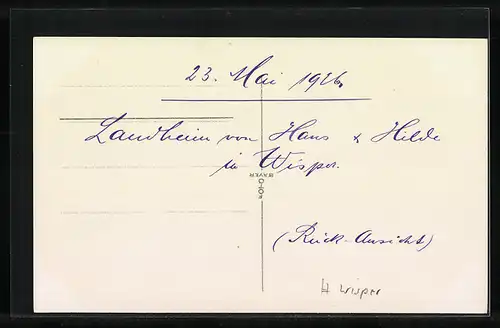 23. Mai 1926.
Landheim von Hans & Hilde
in Wisper.
FOTO
BAYER
(Rück-Ansicht)
H Wisper